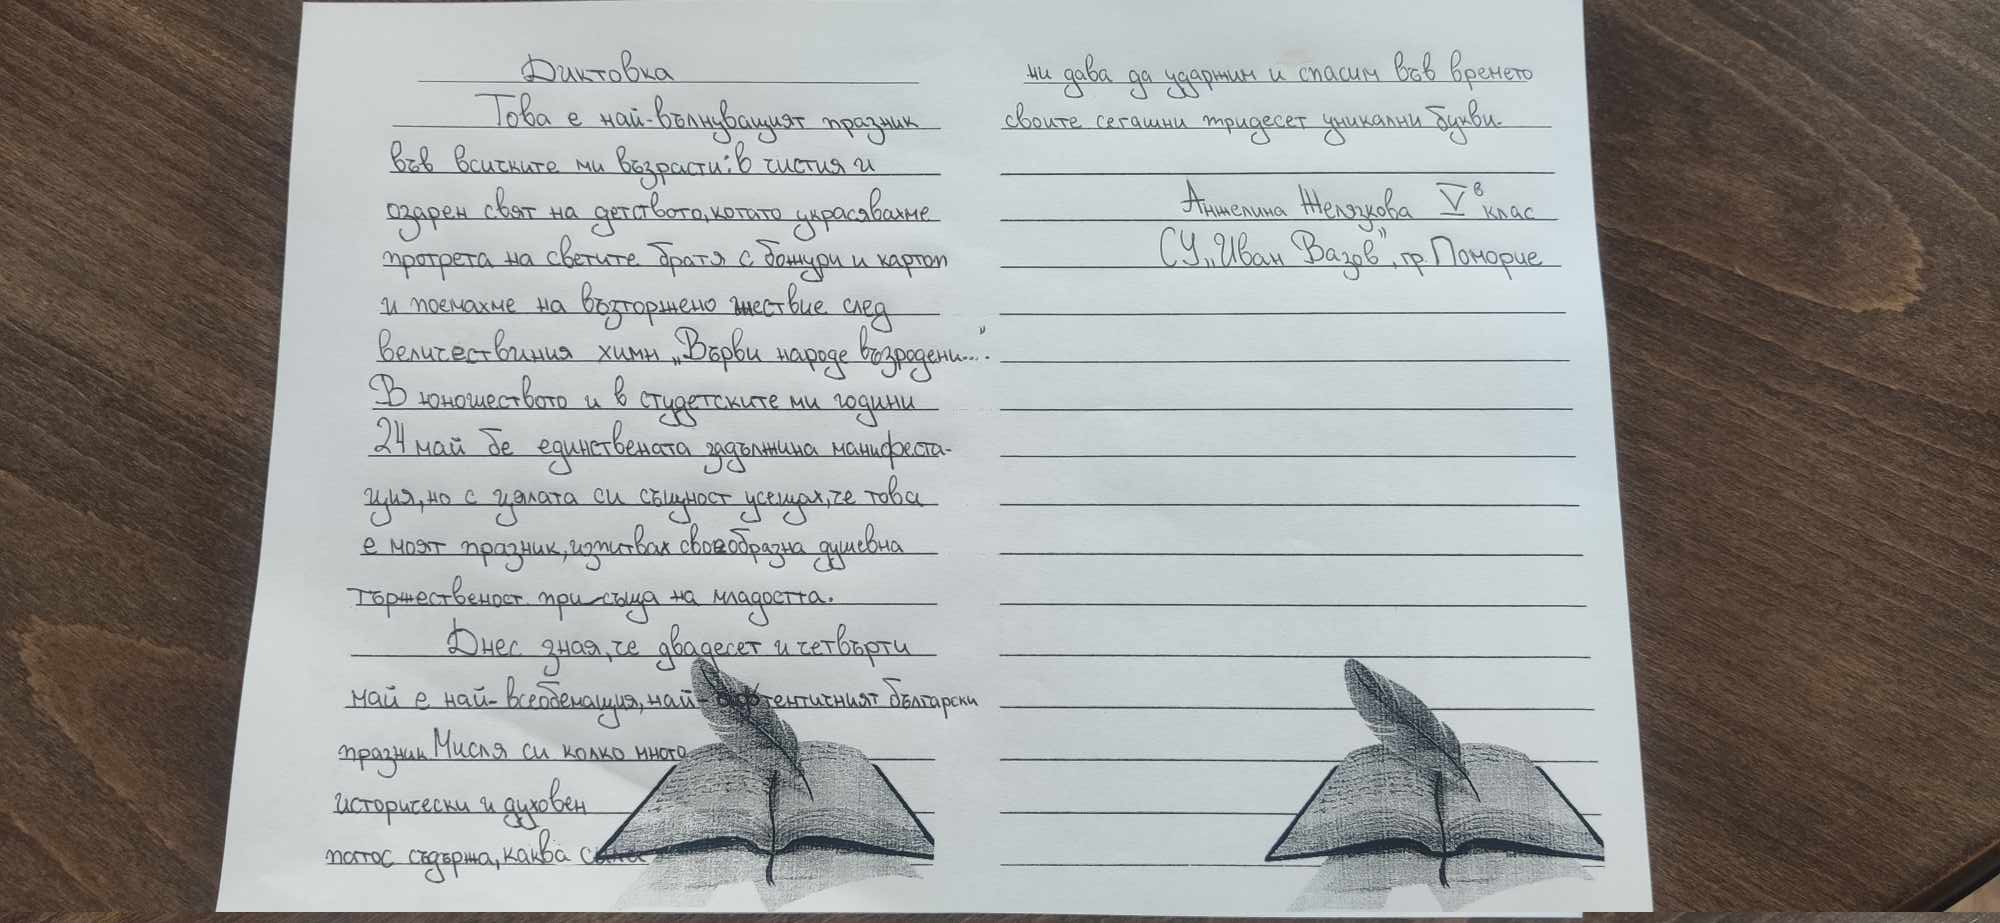 Диктовка
Това е най-вълнуващият празник
във всичките ми възрасти: в чистия и
озарен свят на детството, когато украсявахме
протрета на светите братя с божури и картоп
и поемахме на възторжено шествие след
величествиния химн „Върви народе възродени...".
В юношеството и в студетските ми години
24 май бе единствената задължина манифеста-
ция, но с цялата си същност усещах, че това
е моят празник, изпитвах своеобразна душевна
тържественост присъща на младостта.
Днес зная, че двадесет и четвърти
май е най-всеобемащия, най-автентисният български
празник. Мисля си колко много
исторически и духовен
патос съдържа, каква сила
ни дава да удържим и спасим във времето
своите сегашни тридесет уникални букви.
Анжелина Желязкова V в клас
СУ „Иван Вазов", гр. Поморие